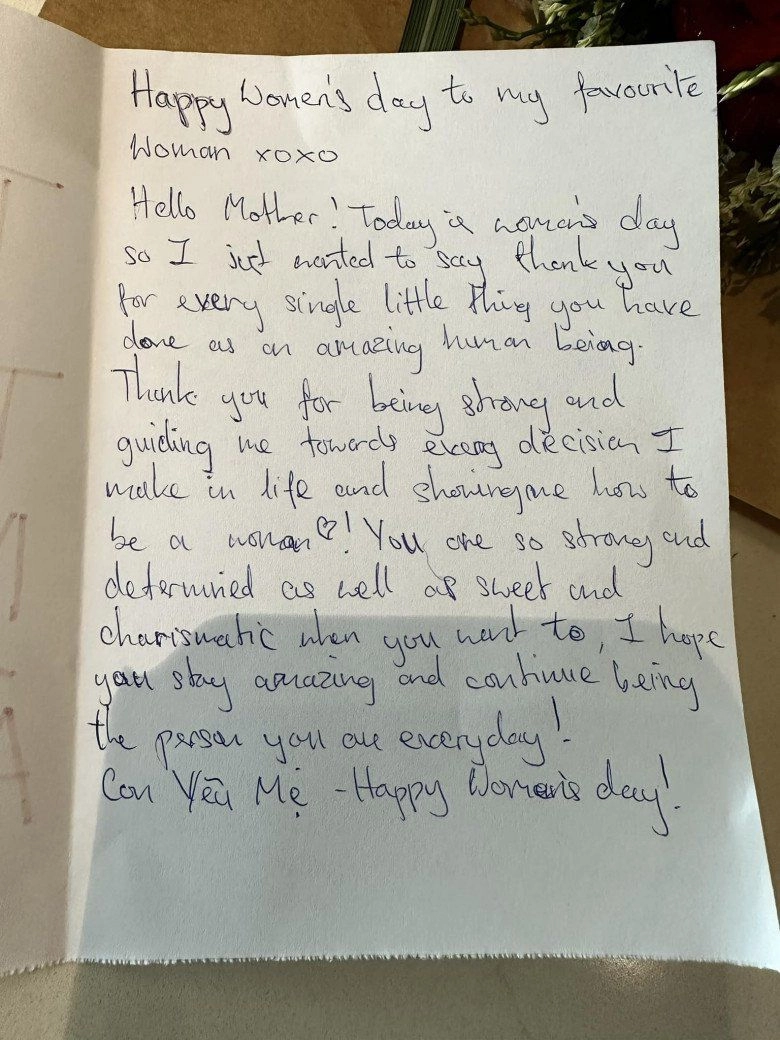 Happy Women's day to my favourite
Woman xoxo
Hello Mother! Today is woman's day
so I just wanted to say thank you
for every single little thing you have
done as an amazing human being.
Thank you for being strong and
guiding me towards every decision I
make in life and showing me how to
be a woman♡! You are so strong and
determined as well as sweet and
charismatic when you want to, I hope
you stay amazing and continue being
the person you are everyday!
Con Yêu Mẹ - Happy Women's day!